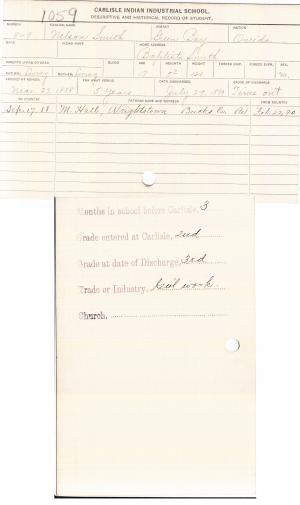 1059
CARLISLE INDIAN INDUSTRIAL SCHOOL.
DESCRIPTIVE AND HISTORICAL RECORD OF STUDENT.
NUMBER ENGLISH NAME AGENCY NATION
Nelson Smith Green Bay Oneida
BAND INDIAN NAME HOME ADDRESS
Baptist Smith
PARENTS LIVING OR DEAD BLOOD AGE HEIGHT WEIGHT FORCED INSP. FORCED EXPR. SEX
FATHER, Living MOTHER, Living 17 M.
ARRIVED AT SCHOOL FOR WHAT PERIOD DATE DISCHARGED CAUSE OF DISCHARGE
Mar. 23. 1888 5 years July 29, 1890 Time out
TO COUNTRY PATRONS NAME AND ADDRESS FROM COUNTRY
Sep. 17. 88 M. Hall, Wrightstown Bucks Co. Pa. Feb. 22, 90
Months in school before Carlisle, 3
Grade entered at Carlisle, 2nd
Grade at date of Discharge, 3rd
Trade or Industry, work.
Church,